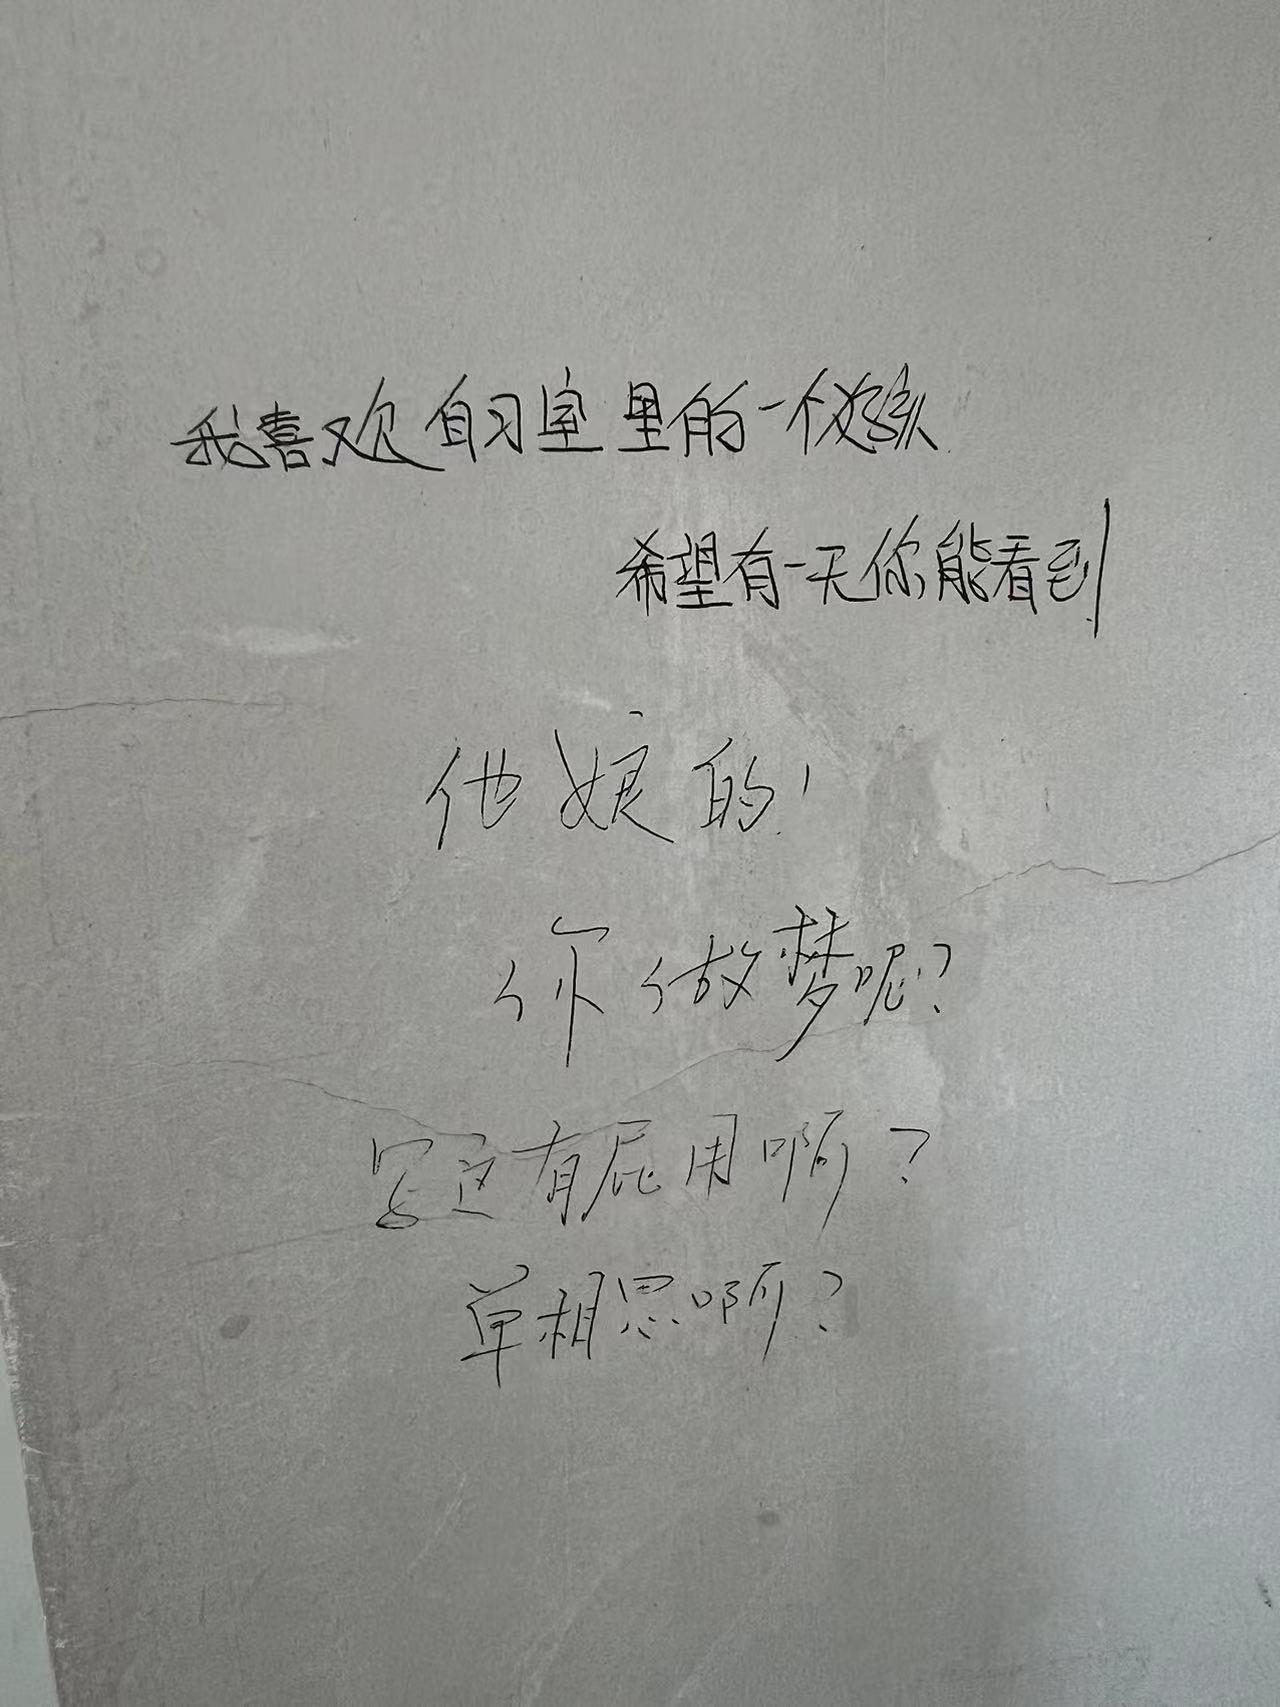 我喜欢自习室里的一个女孩
希望有一天你能看到
他娘的!
你做梦呢?
写这有屁用啊?
单相思啊?